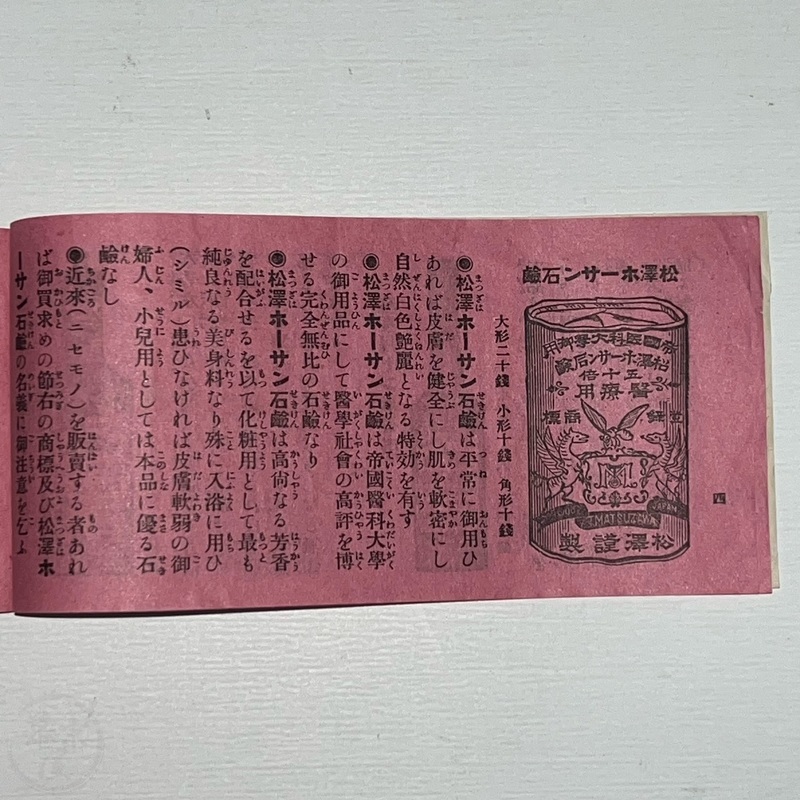 四
松澤ホーサン石鹼
帝國醫科大學御用
松澤ホーサン石鹼
五十倍
醫療用
登録商標
T.MATSUZAWA
JAPAN
松澤謹製
大形二十錢 小形十錢 角形十錢
◉松澤ホーサン石鹼は平常に御用ひ
あれば皮膚を健全にし肌を軟密にし
自然白色艶麗となる特効を有す
◉松澤ホーサン石鹼は帝國醫科大學
の御用品にして醫學社會の高評を博
せる完全無比の石鹼なり
◉松澤ホーサン石鹼は高尚なる芳香
を配合せるを以て化粧用として最も
純良なる美身料なり殊に入浴に用ひ
(シミル)患ひなければ皮膚軟弱の御
婦人、小兒用としては本品に優る石
鹼なし
◉近來(ニセモノ)を販賣する者あれ
ば御買求めの節右の商標及び松澤ホ
ーサン石鹼の名義に御注意を乞ふ